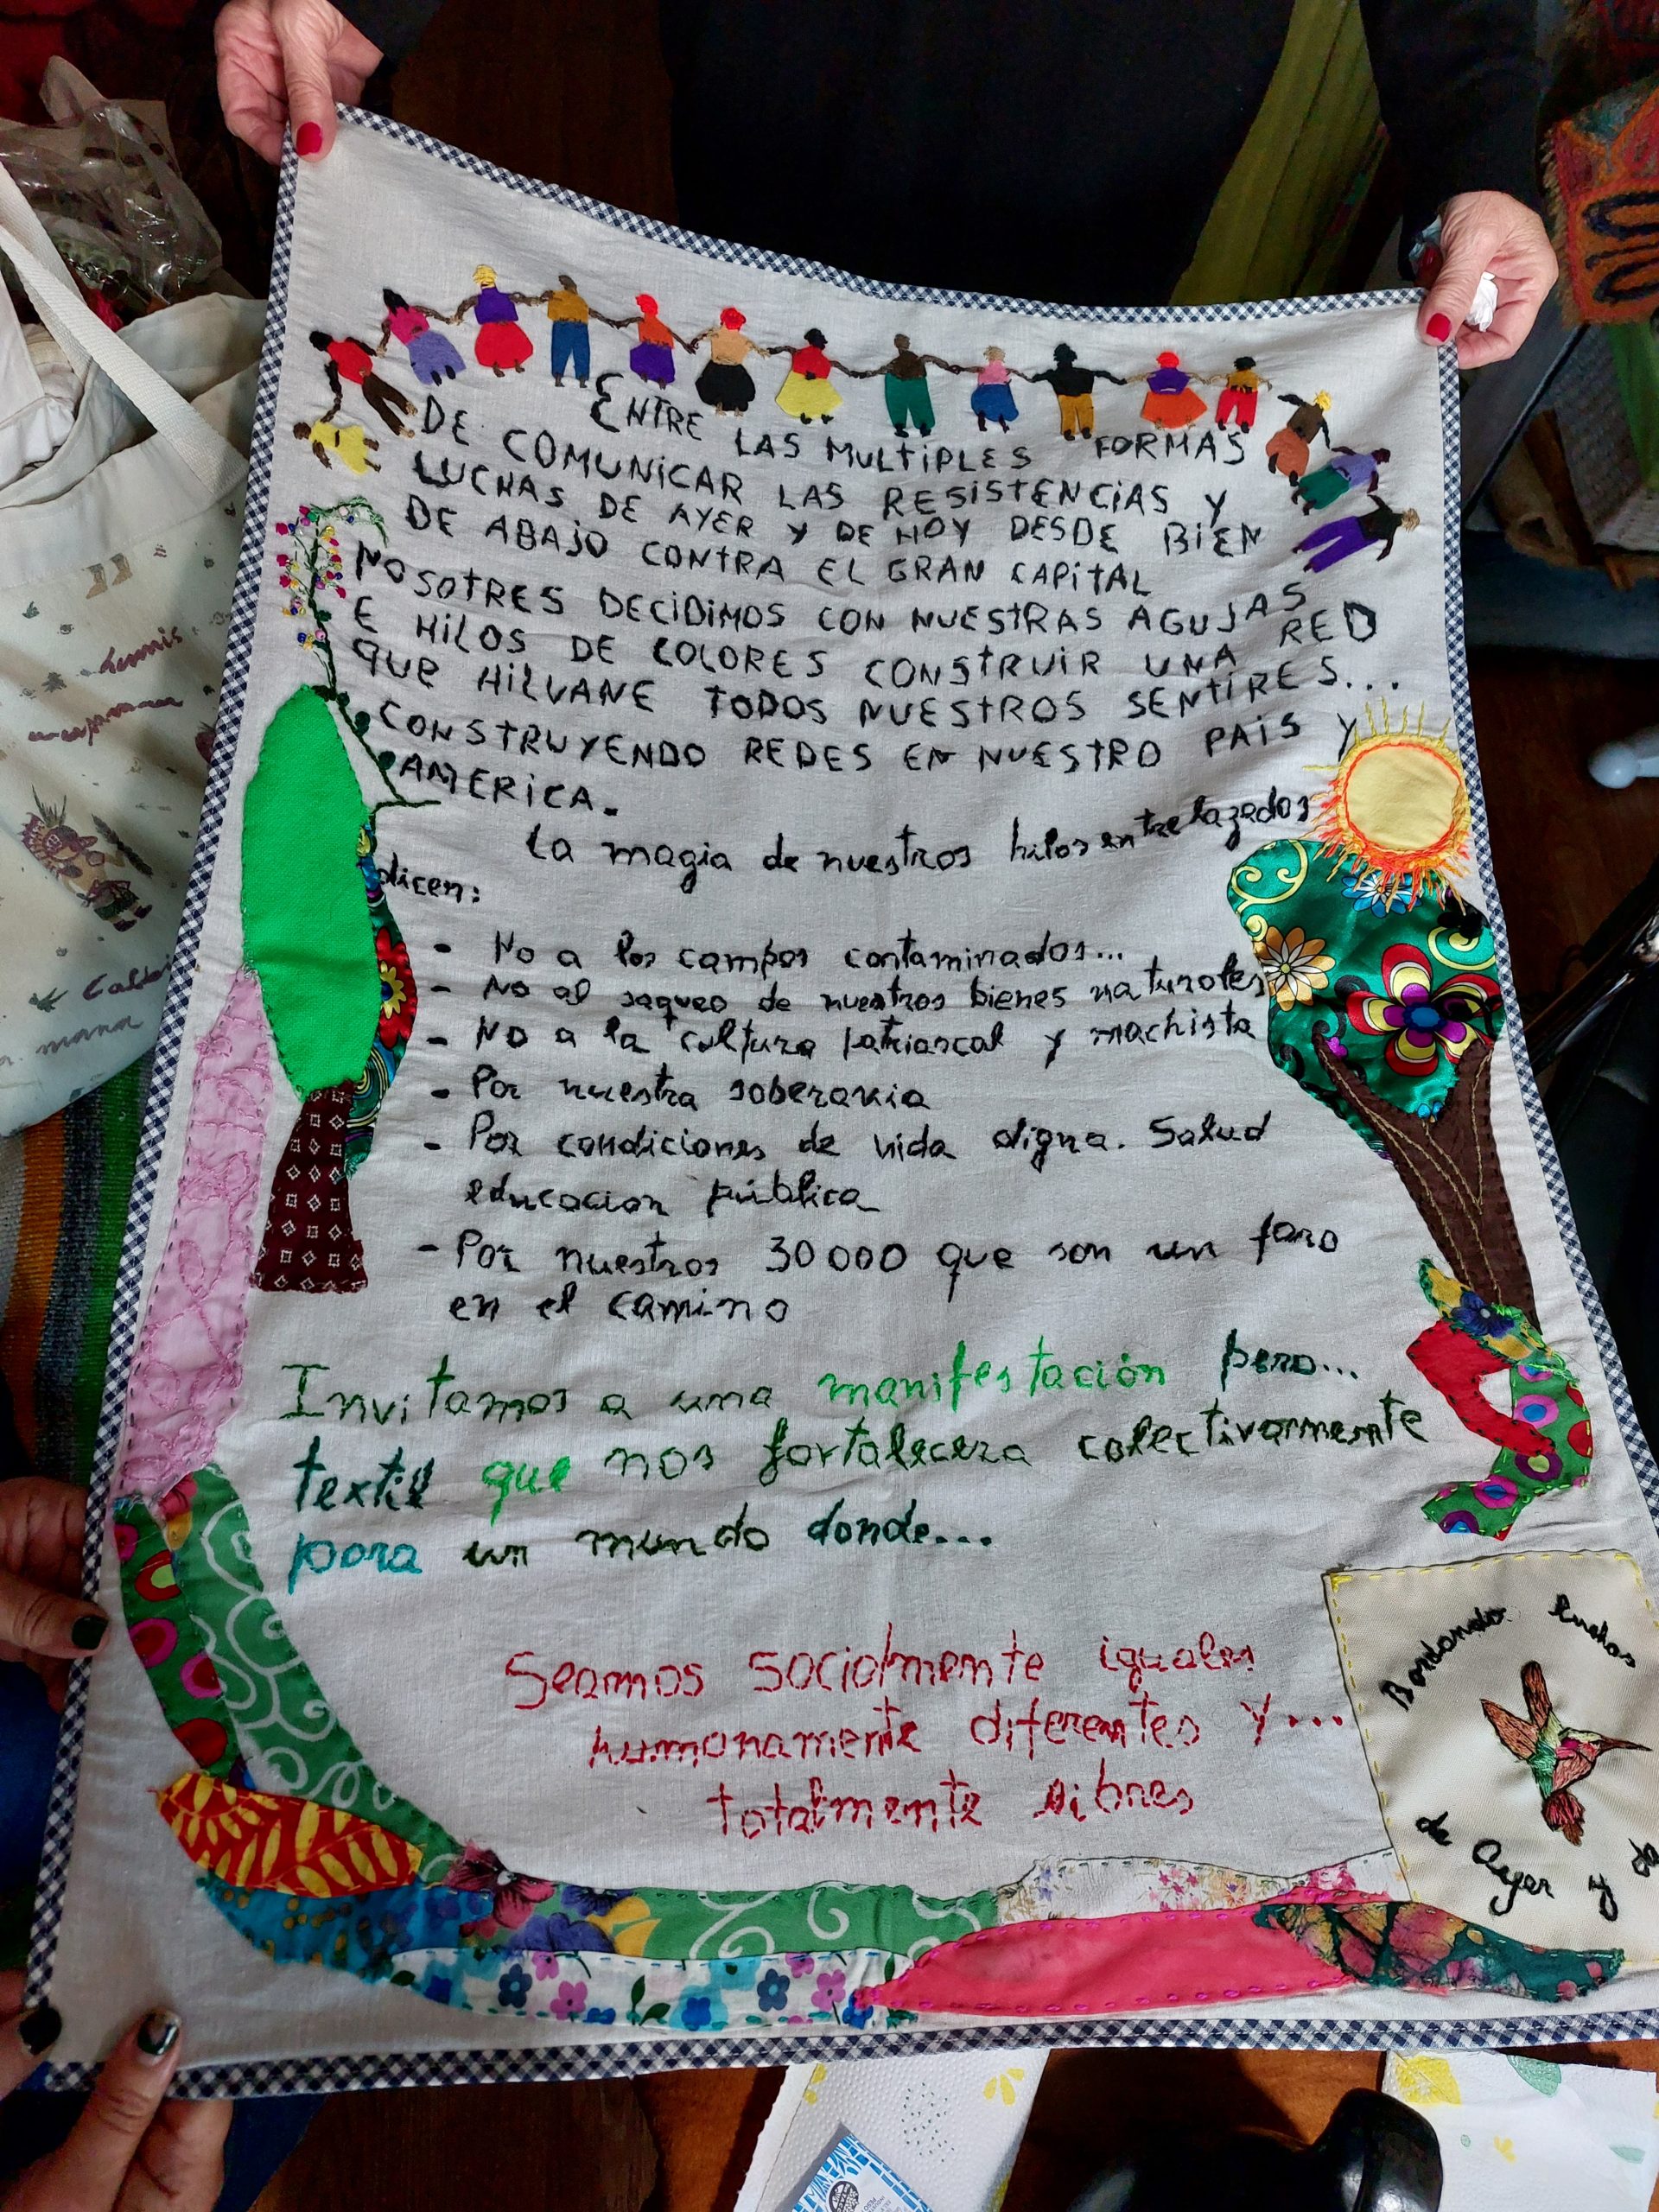 ENTRE LAS MULTIPLES FORMAS
DE COMUNICAR LAS RESISTENCIAS Y
LUCHAS DE AYER Y DE HOY DESDE BIEN
DE ABAJO CONTRA EL GRAN CAPITAL
NOSOTRES DECIDIMOS CON NUESTRAS AGUJAS
E HILOS DE COLORES CONSTRUIR UNA RED
QUE HILVANE TODOS NUESTROS SENTIRES...
CONSTRUYENDO REDES EN NUESTRO PAIS Y
AMERICA.
La magia de nuestros hilos entrelazados
dicen:
- No a los campos contaminados...
- No al saqueo de nuestros bienes naturales
- No a la cultura patriarcal y machista
- Por nuestra soberania
- Por condiciones de vida digna. Salud
educacion pública
- Por nuestros 30000 que son un faro
en el camino
Invitamos a una manifestación pero...
textil que nos fortalecera colectivamente
para un mundo donde...
Seamos socialmente iguales
humanamente diferentes y...
totalmente libres
Bordando luchas
de Ayer y de